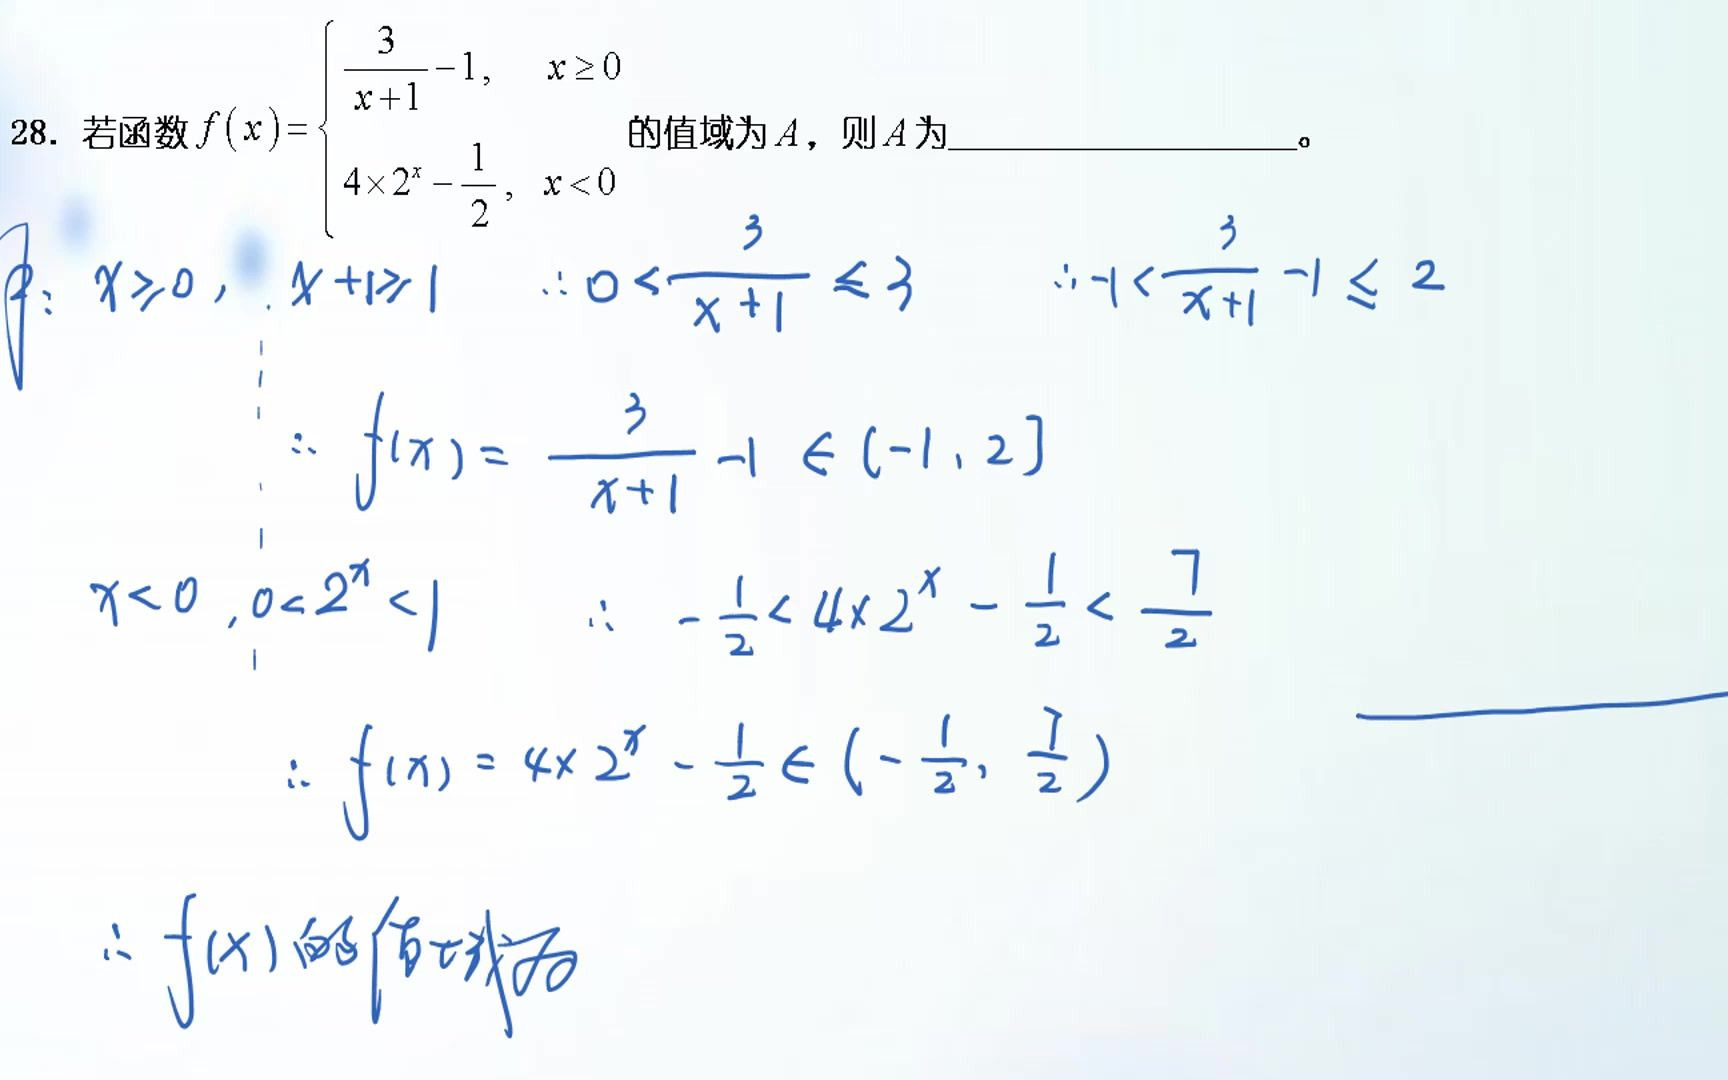 28. 若函数 f(x) = { 3/(x+1) − 1, x ≥ 0
4×2^x − 1/2, x < 0 的值域为 A，则 A 为____________。
x ≥ 0, x+1 ≥ 1 ∴ 0 < 3/(x+1) ≤ 3 ∴ -1 < 3/(x+1) -1 ≤ 2
∴ f(x) = 3/(x+1) -1 ∈ (-1, 2]
x < 0, 0 < 2^x < 1 ∴ -1/2 < 4×2^x - 1/2 < 7/2
∴ f(x) = 4×2^x - 1/2 ∈ (-1/2, 7/2)
∴ f(x) 的值域为